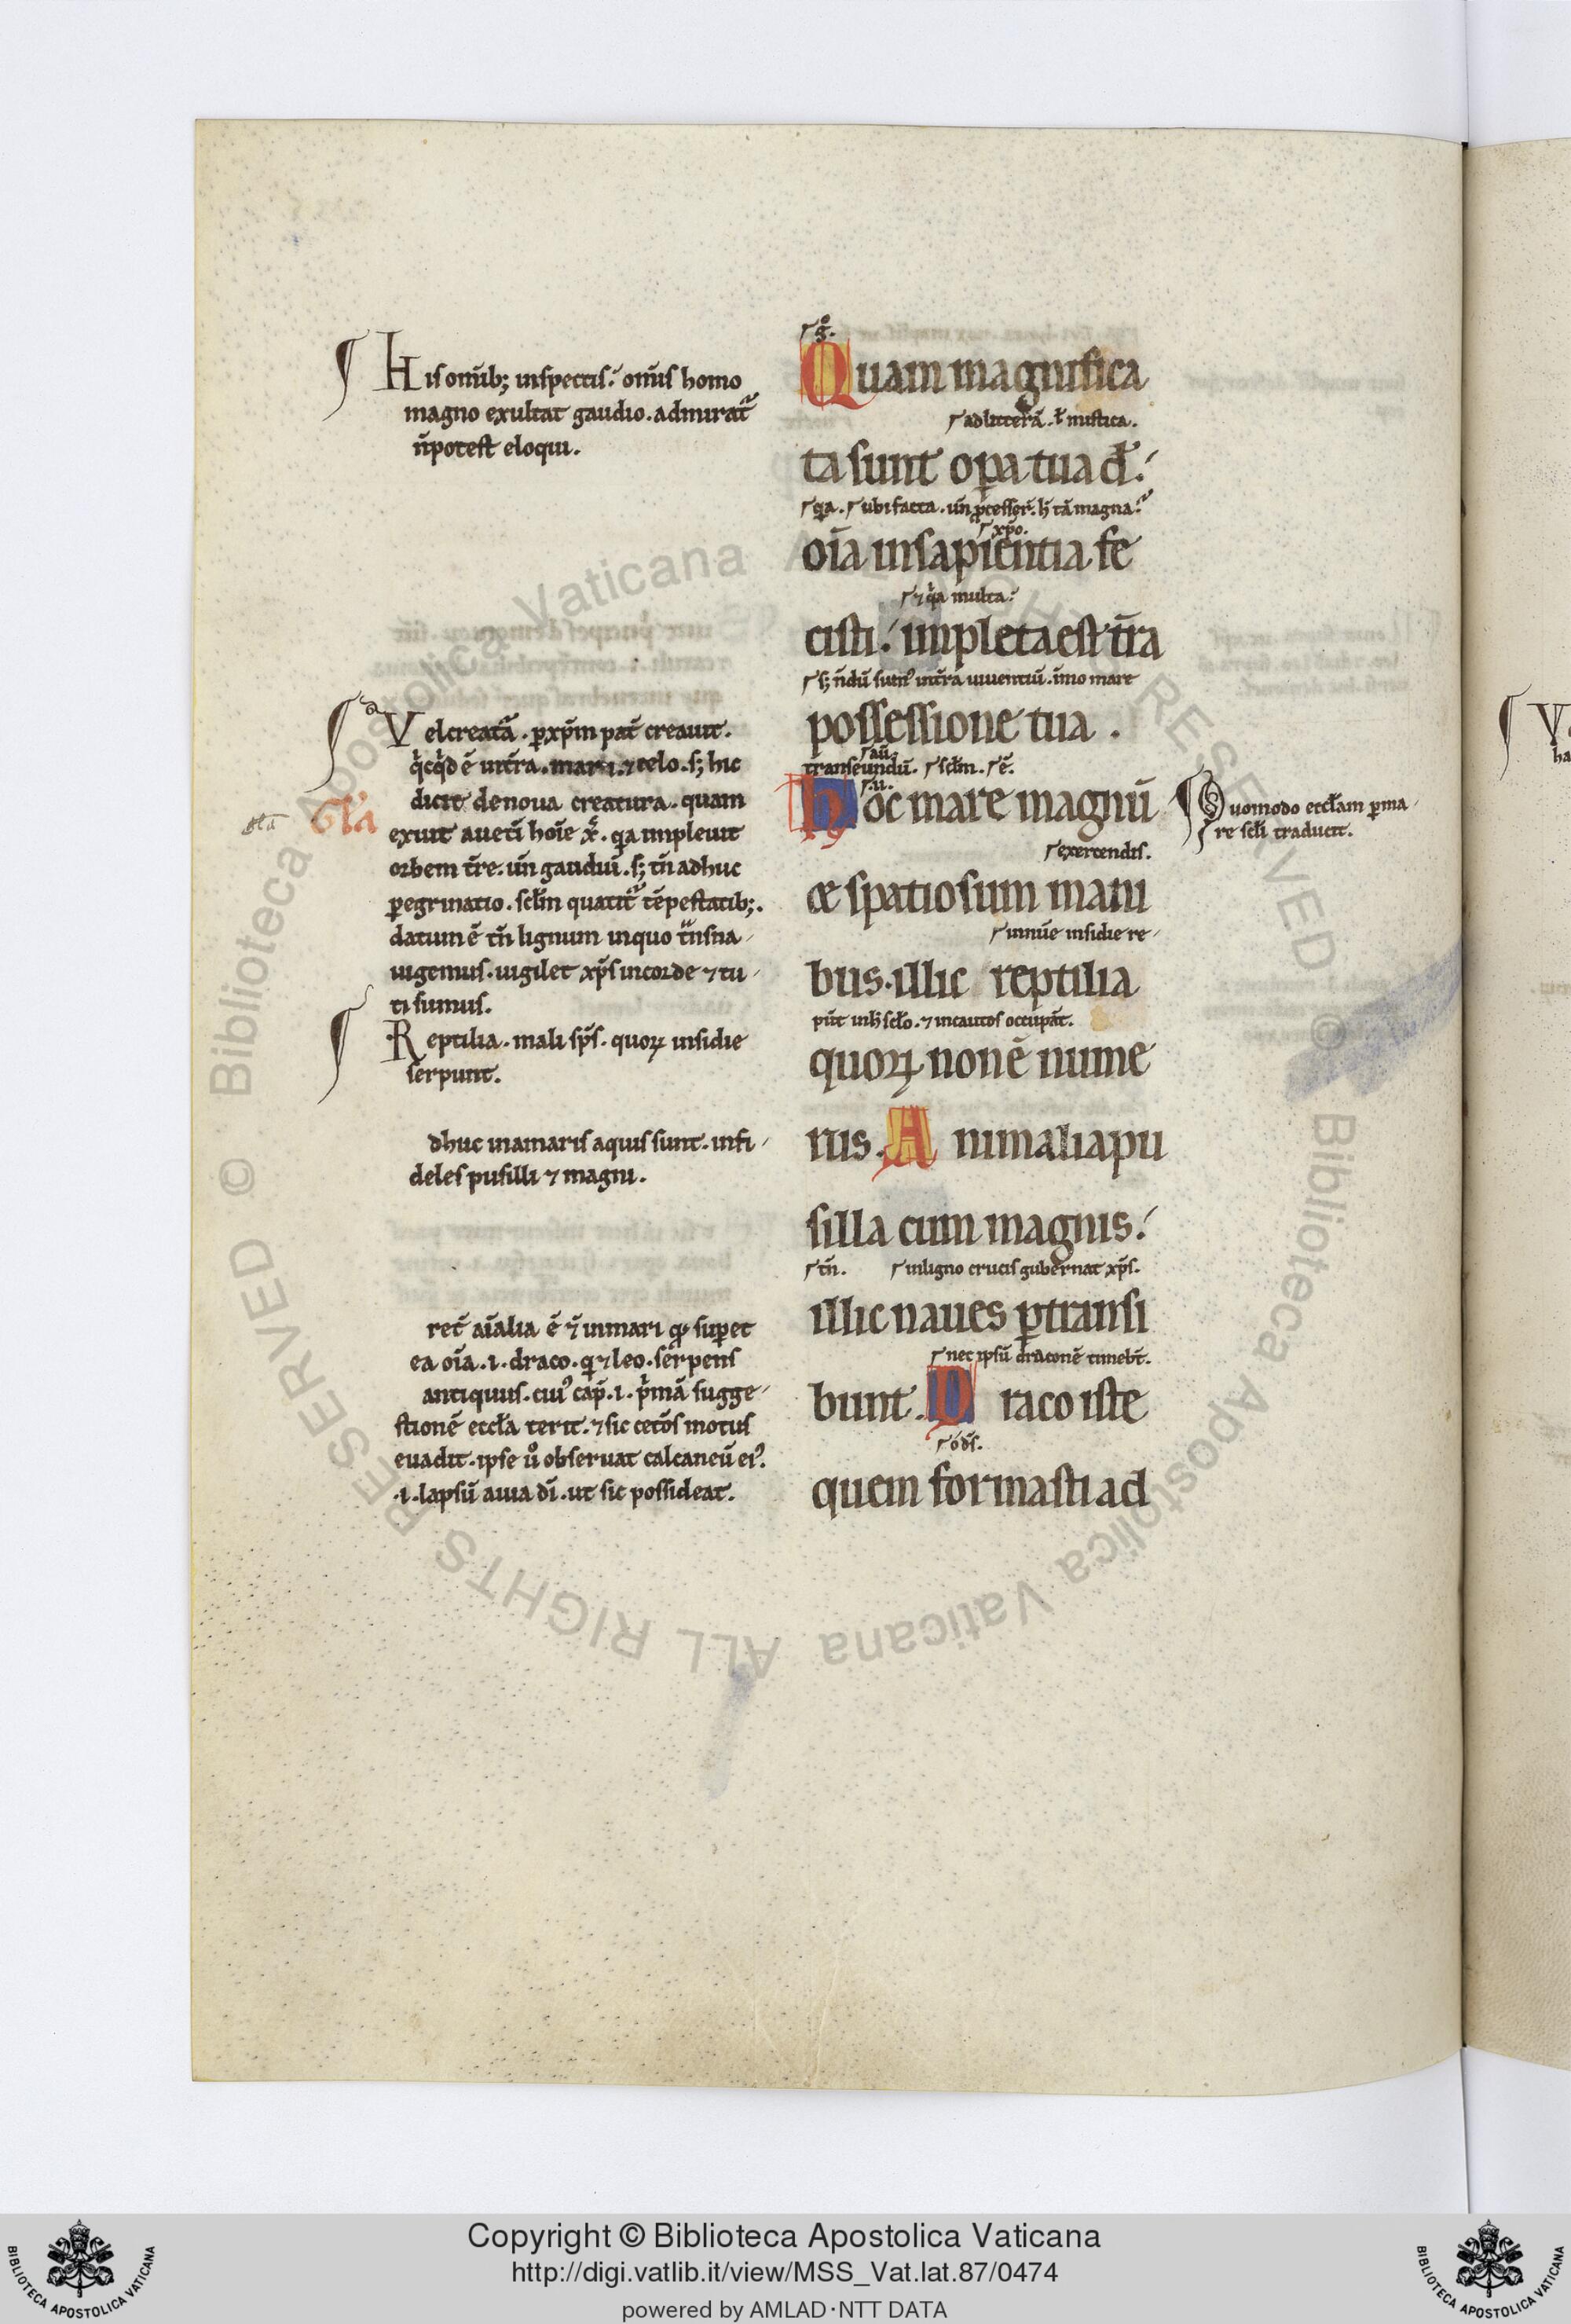 ¶ His om̅ib; inspectis. om̅is homo
magno exultat gaudio. admirat᷑
n̅ potest eloqui.
Vel creata̅. p̱ xp̅m pat̅ creauit.
q̇cq̇d e̅ in t̅ra. mari. ⁊ celo. s; hic
dicit de noua creatura. quam
exuit a uet̅i ho̅ie xp̅c. q̱a impleuit
orbem t̅re. un̅ gaudiu̅. s; tn̅ adhuc
p̱egrinatio. scl̅m quatit᷑ te̅pestatib;.
datum e̅ tn̅ lignum in quo t̅nsna
uigemus. uigilet xp̅s in corde ⁊ tu
ti sumus.
gl̅a
Gl̅a
Reptilia. mali sp̅s. quoꝝ insidie
serpunt.
dhuc in amaris aquis sunt. infi
deles pusilli ⁊ magni.
ret̅ ai̅alia e̅ ⁊ in mari qͥ sup̱et
ea oi̅a. .i. draco. qͥ ⁊ leo. serpens
antiquus. cuiꝰ cap̅. .i. p̍ma̅ sugge
stione̅ eccl̅a terit. ⁊ sic ceto̅s motus
euadit. ipse uͦ obseruat calcaneu̅ eiꝰ.
.i. lapsu̅ a uia di̅. ut sic possideat.
gͦ.
Quam magnifica
ad littera̅. l̅ mistica.
ta sunt op̱a tua d̅.
q̱a. ubi facta. un̅ p̱cesser̅. h̅ ta̅ magna.
xp̅o.
oi̅a in sapientia fe
⁊ q̇a multa.
cisti. impleta est t̅ra
s; n̅du̅ sumꝰ in t̅ra uiuentiu̅. i̅mo mare
possessione tua.
au̅.
transeundu̅. scl̅m. e̅.
.u.
hoc mare magnu̅
¶ Quomodo eccl̅am p̱ ma
re scl̅i traducit.
exercendis.
et spatiosum mani
innu̅e insidie re
bus. illic reptilia
pu̅t in h̅ scl̅o. ⁊ incautos occupa̅t.
quoꝝ non e̅ nume
rus. Animalia pu
silla cum magnis.
tn̅. in ligno crucis gubernat xp̅s.
illic naues p̱transi
nec ipsu̅ dracone̅ timebt̅.
bunt. Draco iste
o ds̅.
quem formasti ad
Copyright © Biblioteca Apostolica Vaticana
http://digi.vatlib.it/view/MSS_Vat.lat.87/0474
powered by AMLAD·NTT DATA